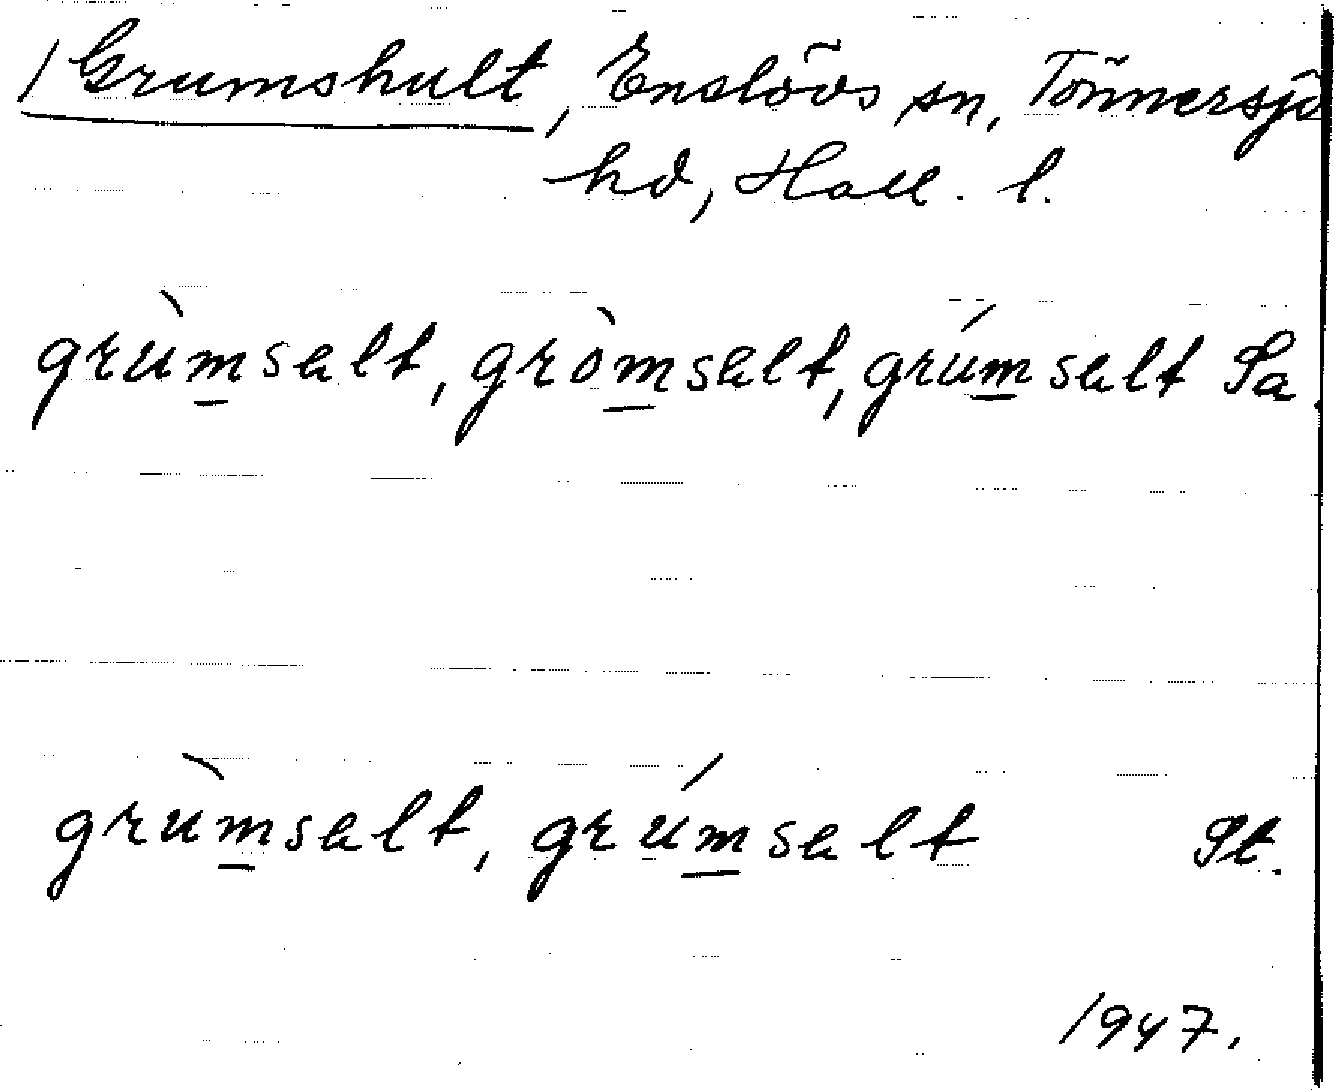 / Grumshult, Enslövs sn, Tönnersjö
hd, Hall. l.
grùm̲sալt, gròm̲sալt, grúm̲sալt Sa
grùm̲sալt, grúm̲sալt St.
1947.